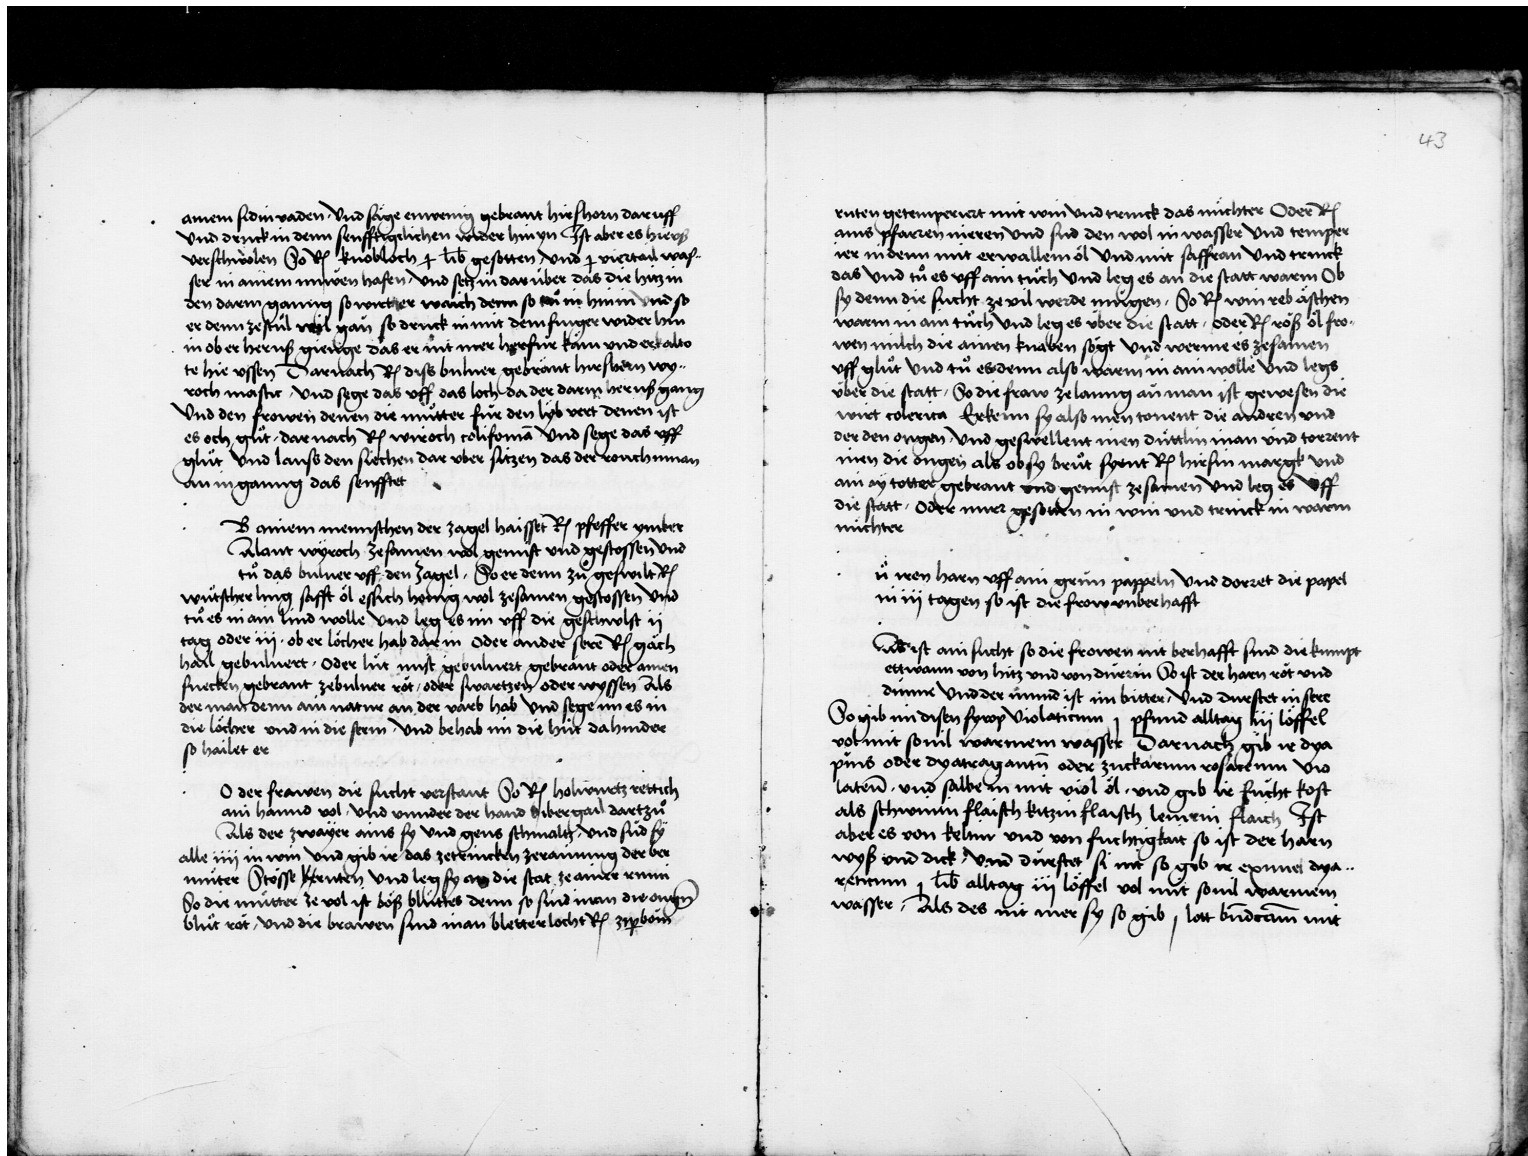 ainem sidin vaden · Und säge ein wenig gebrant hirshorn dar uff
Und druck in denn senfftigclichen wider hin yn Ist aber es hieruß
verschwolen So Rx knobloch j lib gesotten Und j viertail was-
ser in ainem nuwen hafen · Und setz in dar über das die hitz in
den darm gang so wirt er waich denn so tů in hinin und so
er denn ze stůl wil gan so druck in mit dem finger wider hin
in ob er heruß gienge das er nit mer herfur kam und erkalto
te hie ussen Darnach Rx diss buluer gebrant hirshorn wy-
roch mastic · Und sege das uff das loch da der darm heruß gang
Und den frowen denen die můtter für den lyb vert denen ist
es och gůt · dar nach Rx wiroch colifoniā Und sege das uff
glůt Und lauss den siechen dar uber sitzen das der rouch im an
an in gang das senfftet
B ainem menschen der zagel haisset Rx pfeffer ymber
Alant wyroch zesamen wol gemist und gestossen Und
tů das buluer uff den zagel · So er denn zů geswilt Rx
wutscherling safft öl essich honig wol zesamen gestossen Und
tů es in ain lind wolle Und leg es im uff die geschwlst ij
tag oder iij · ob er löcher hab dar in Oder ander sere Rx gäch
hail gebuluert · Oder lüt mist gebuluert gebrant oder ainen
flecken gebrant ze buluer rot · oder swartzen oder wyssen Als
der man denn ain natur an der varb hab Und sege im es in
die löcher und in die stein · Und behab im die hut dahinder
so hailet er
O der frawen die sucht verstant So Rx holwurtz rettich
ain hannd vol · Und uinder der hand bibergail dartzů
Als der zwayer ains sy und gens schmaltz · Und sud sy
alle iiij in win Und gib ir das ze trincken ze rainung der ber
můter Stosse ruten Und leg sy an die stat ze ainer rinni
So die můtter ze vol ist böß blůttes denn so sind inen die ougen
blůt rot · Und die brawen sind inen bletterlocht Rx zipboim
43
ruten getemperiert mit win Und trinck das nüchter Oder Rx
ains pfarren nieren Und sud den wol in wasser Und temper
ier in denn mit erwallem öl Und mit saffran Und trinck
das Und tů es uff ain tůch Und leg es an die statt warm Ob
sy denn die sucht ze vil werde mügen · So Rx win reb äschen
warm in ain tůch Und leg es über die statt · Oder Rx röß öl fro-
wen milch die ainen knaben sögt Und werme es zesamen
uff glůt Und tů es denn also warm in ain wolle Und legs
über die statt · So die fraw ze lanng an man ist gewesen die
wirt colerica Erkenn sy also inen touent die andren und
der den ougen · Und geswellent inen düttlin man und torrent
inen die ougen als ob sy brůt syent Rx hirsin margk Und
ain ay totter gebrant und gemist zesamen Und leg es uff
die statt · Oder mirr gesotten in win und trinck in warm
nüchter
ů iren harn uff ain grün pappeln Und dorret die papel
in iij tagen so ist die frow unberhafft
Es ist ain sucht so die frowen nit berhafft sind die kumpt
ettwann von hitz und von dürrin So ist der harn rot und
dünne Und der mund ist im bitter · Und durstet in sere
So gib im disen syrup Violaticum j pfund alltag iij löffel
vol mit souil warmem wasser Darnach gib ir dya
pūis oder dyatragantū oder zuckarum rosaceum Vio
lateū · und salbe in mit viol öl · und gib ir fücht kost
als schwinin flaisch kitzin flaisch lemrin flaich Ist
aber es von keltin und von fuchtigkait so ist der harn
wyß und dick · Und durstet si nit so gib ir eximel dya-
reticum j lib alltag iij löffel vol mit souil warmem
wasser · Als des nit mer sy so gib j lott bndicām mit